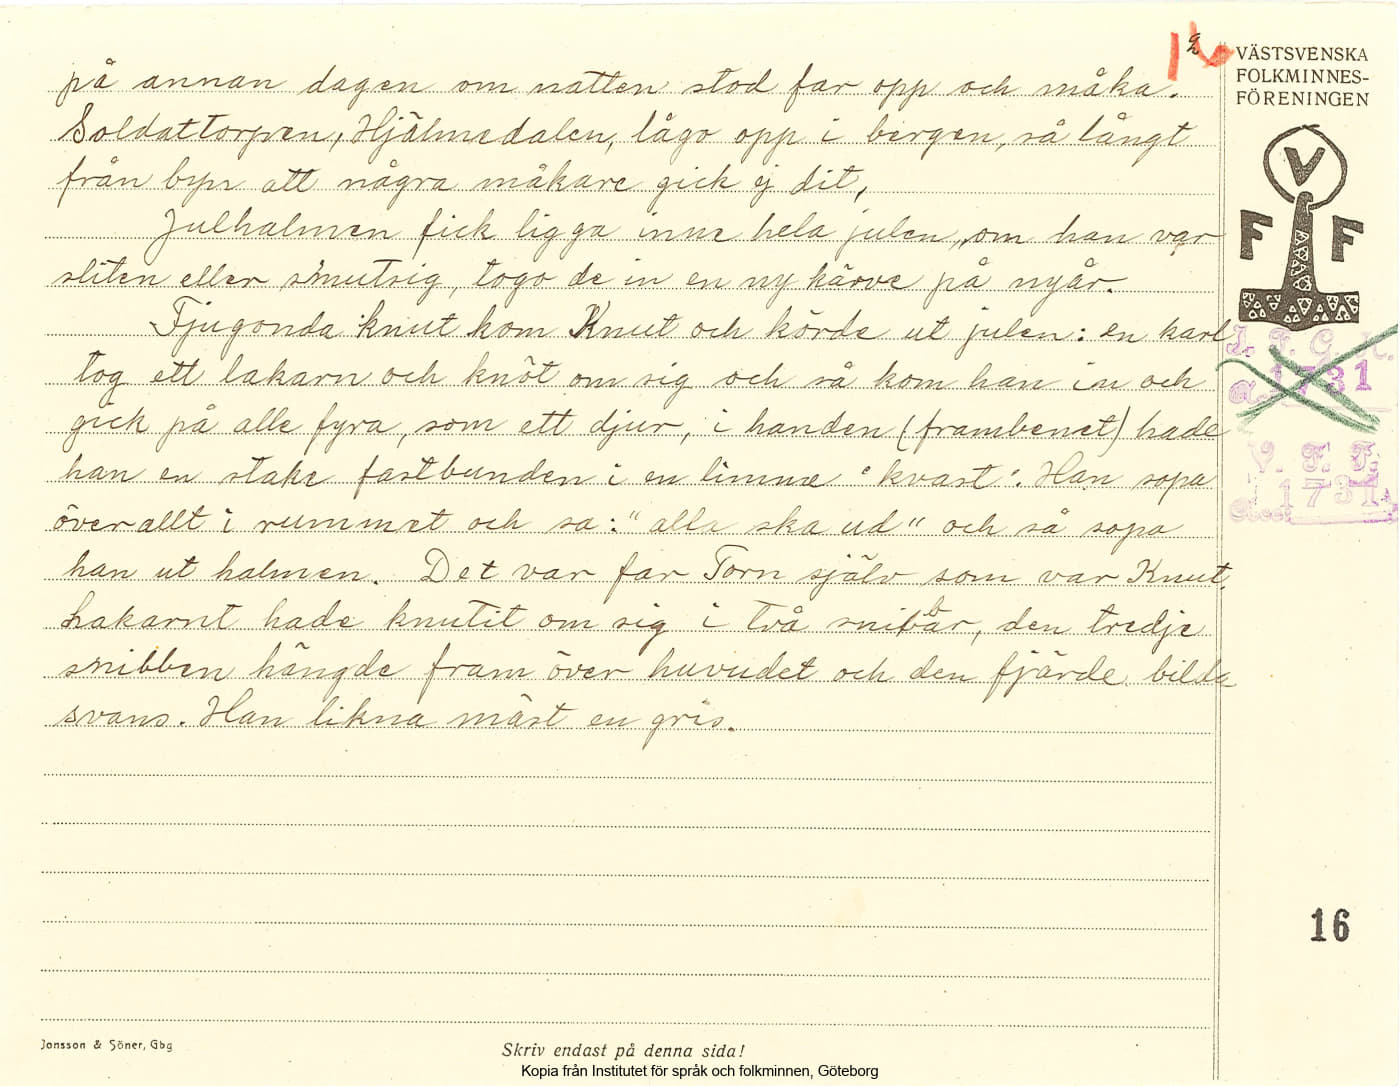 på annan dagen om natten stod far opp och måka.
Soldattorpen, Hjälmedalen, lågo opp i bergen, så långt
från byn att några måkare gick ej dit,
Julhalmen fick ligga inne hela julen, om han var
sliten eller smutsig, togo de in en ny kärve på nyår.
Tjugonda knut kom Knut och körde ut julen: en karl
tog ett lakarn och knöt om sig och så kom han in och
gick på alle fyra, som ett djur, i handen (frambenet) hade
han en stake fastbunden i en limme "kvast". Han sopa
överallt i rummet och sa: "alla ska ud" och så sopa
han ut halmen. Det var far Torn själv som var Knut.
Lakarnt hade knutit om sig i två snibbar, den tredje
snibben hängde fram över huvudet och den fjärde bilda
svans. Han likna mäst en gris.
16
2
VÄSTSVENSKA
FOLKMINNES-
FÖRENINGEN
V
F F
I. F. G. H.
1731
V. F. F.
Acc: 1731
16
Jonsson & Söner, Gbg
Skriv endast på denna sida!
Kopia från Institutet för språk och folkminnen, Göteborg